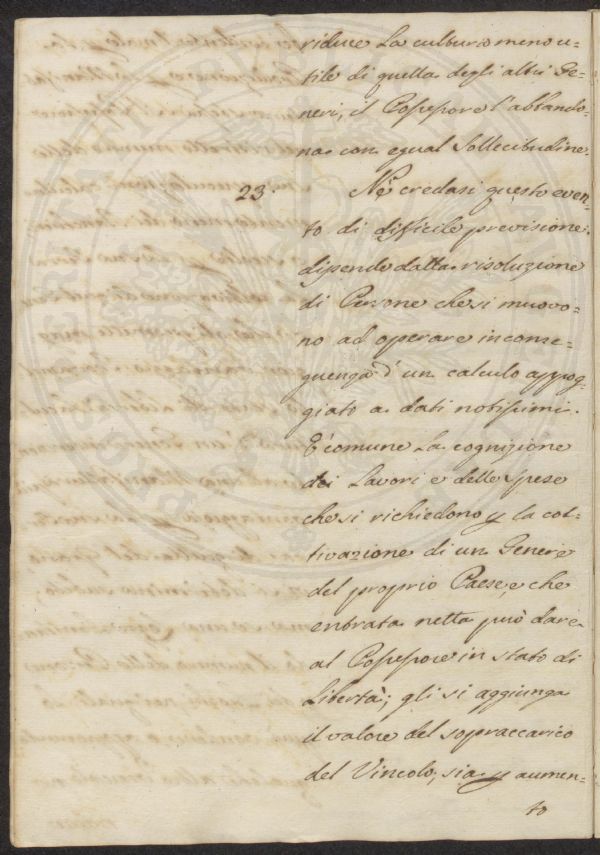 riduce la cultura meno u-
tile di quella degli altri Ge-
neri, il Possessore l'abbando-
na con egual sollecitudine.
23. Nè credasi questo even-
to di difficile previsione.
dipende dalla risoluzione
di Persone che si muovo-
no ad operare in conse-
guenza d'un calculo appog-
giato a dati notissimi.
E' comune la cognizione
dei Lavori e delle Spese
che si richiedono p la col-
tivazione di un Genere
del proprio Paese, e che
entrata netta può dare
al Possessore in stato di
Libertà; gli si aggiunga
il valore del sopraccarico
del Vincolo, sia p aumen-
to
PROSPERITATI PUBLICAE